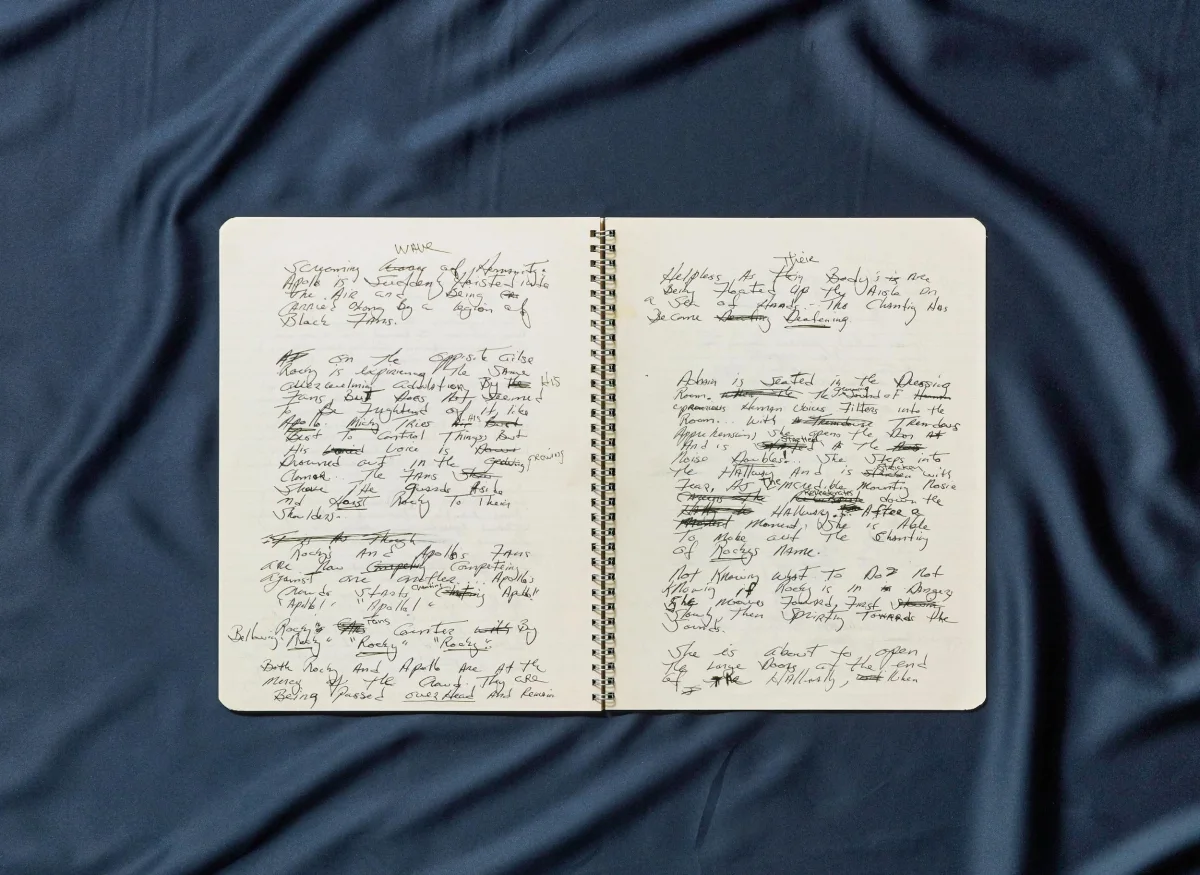 WAVE
Screaming of Humanity.
Apollo is Suddenly Hoisted into
the Air and Being
Carried along by a legion of
Black Fans.
on the opposite side
Rocky is expiriencing the Same
overwhelming adulation By His
Fans, But Does Not Seemed
To Be Frightend of it, like
Apollo. Micky Tries His
Best To Control Things But
His Voice is
Drowned out in the GROWING
Clamor... The Fans
Shove The guards Aside
And Hoist Rocky To Their
Shoulders.
It is As Though
Rockys And Apollos Fans
are Now Competing
against one another... Apollo's
Crowds Starts Chanting Apollo"
"Apollo!" "Apollo!"
Rockys Fans Counter By
Bellowing "Rocky" "Rocky" "Rocky"
Both Rocky And Apollo Are At the
Mercy of the Crowd. They are
Being passed over Head And Remain
Their
Helpless As Body's are
Being Floated Up the Aisle on
a Sea of Hands... The Chanting Has
Become Deafening.
Adrain is Seated in the Dressing
Room. The growing Sound of
Human Voices Filters into the
Room... With Tremdous
Apprehension, She opens the Door
And is Startled At the
Noise Doubles!... She Steps into
the Hallway And is Stricken with
Fear, As The incredible Mounting Noise
Reverberates down the
Hallway. After a
Moment, She is Able
To Make out The Chanting
of Rockys Name.
Not Knowing What To Do Not
Knowing if Rocky is in Danger
She moves Foward, First
Slowly, then Sprinting Towards the
Sounds.
She is about to open
The Large Doors at the end
of the Hallway, When